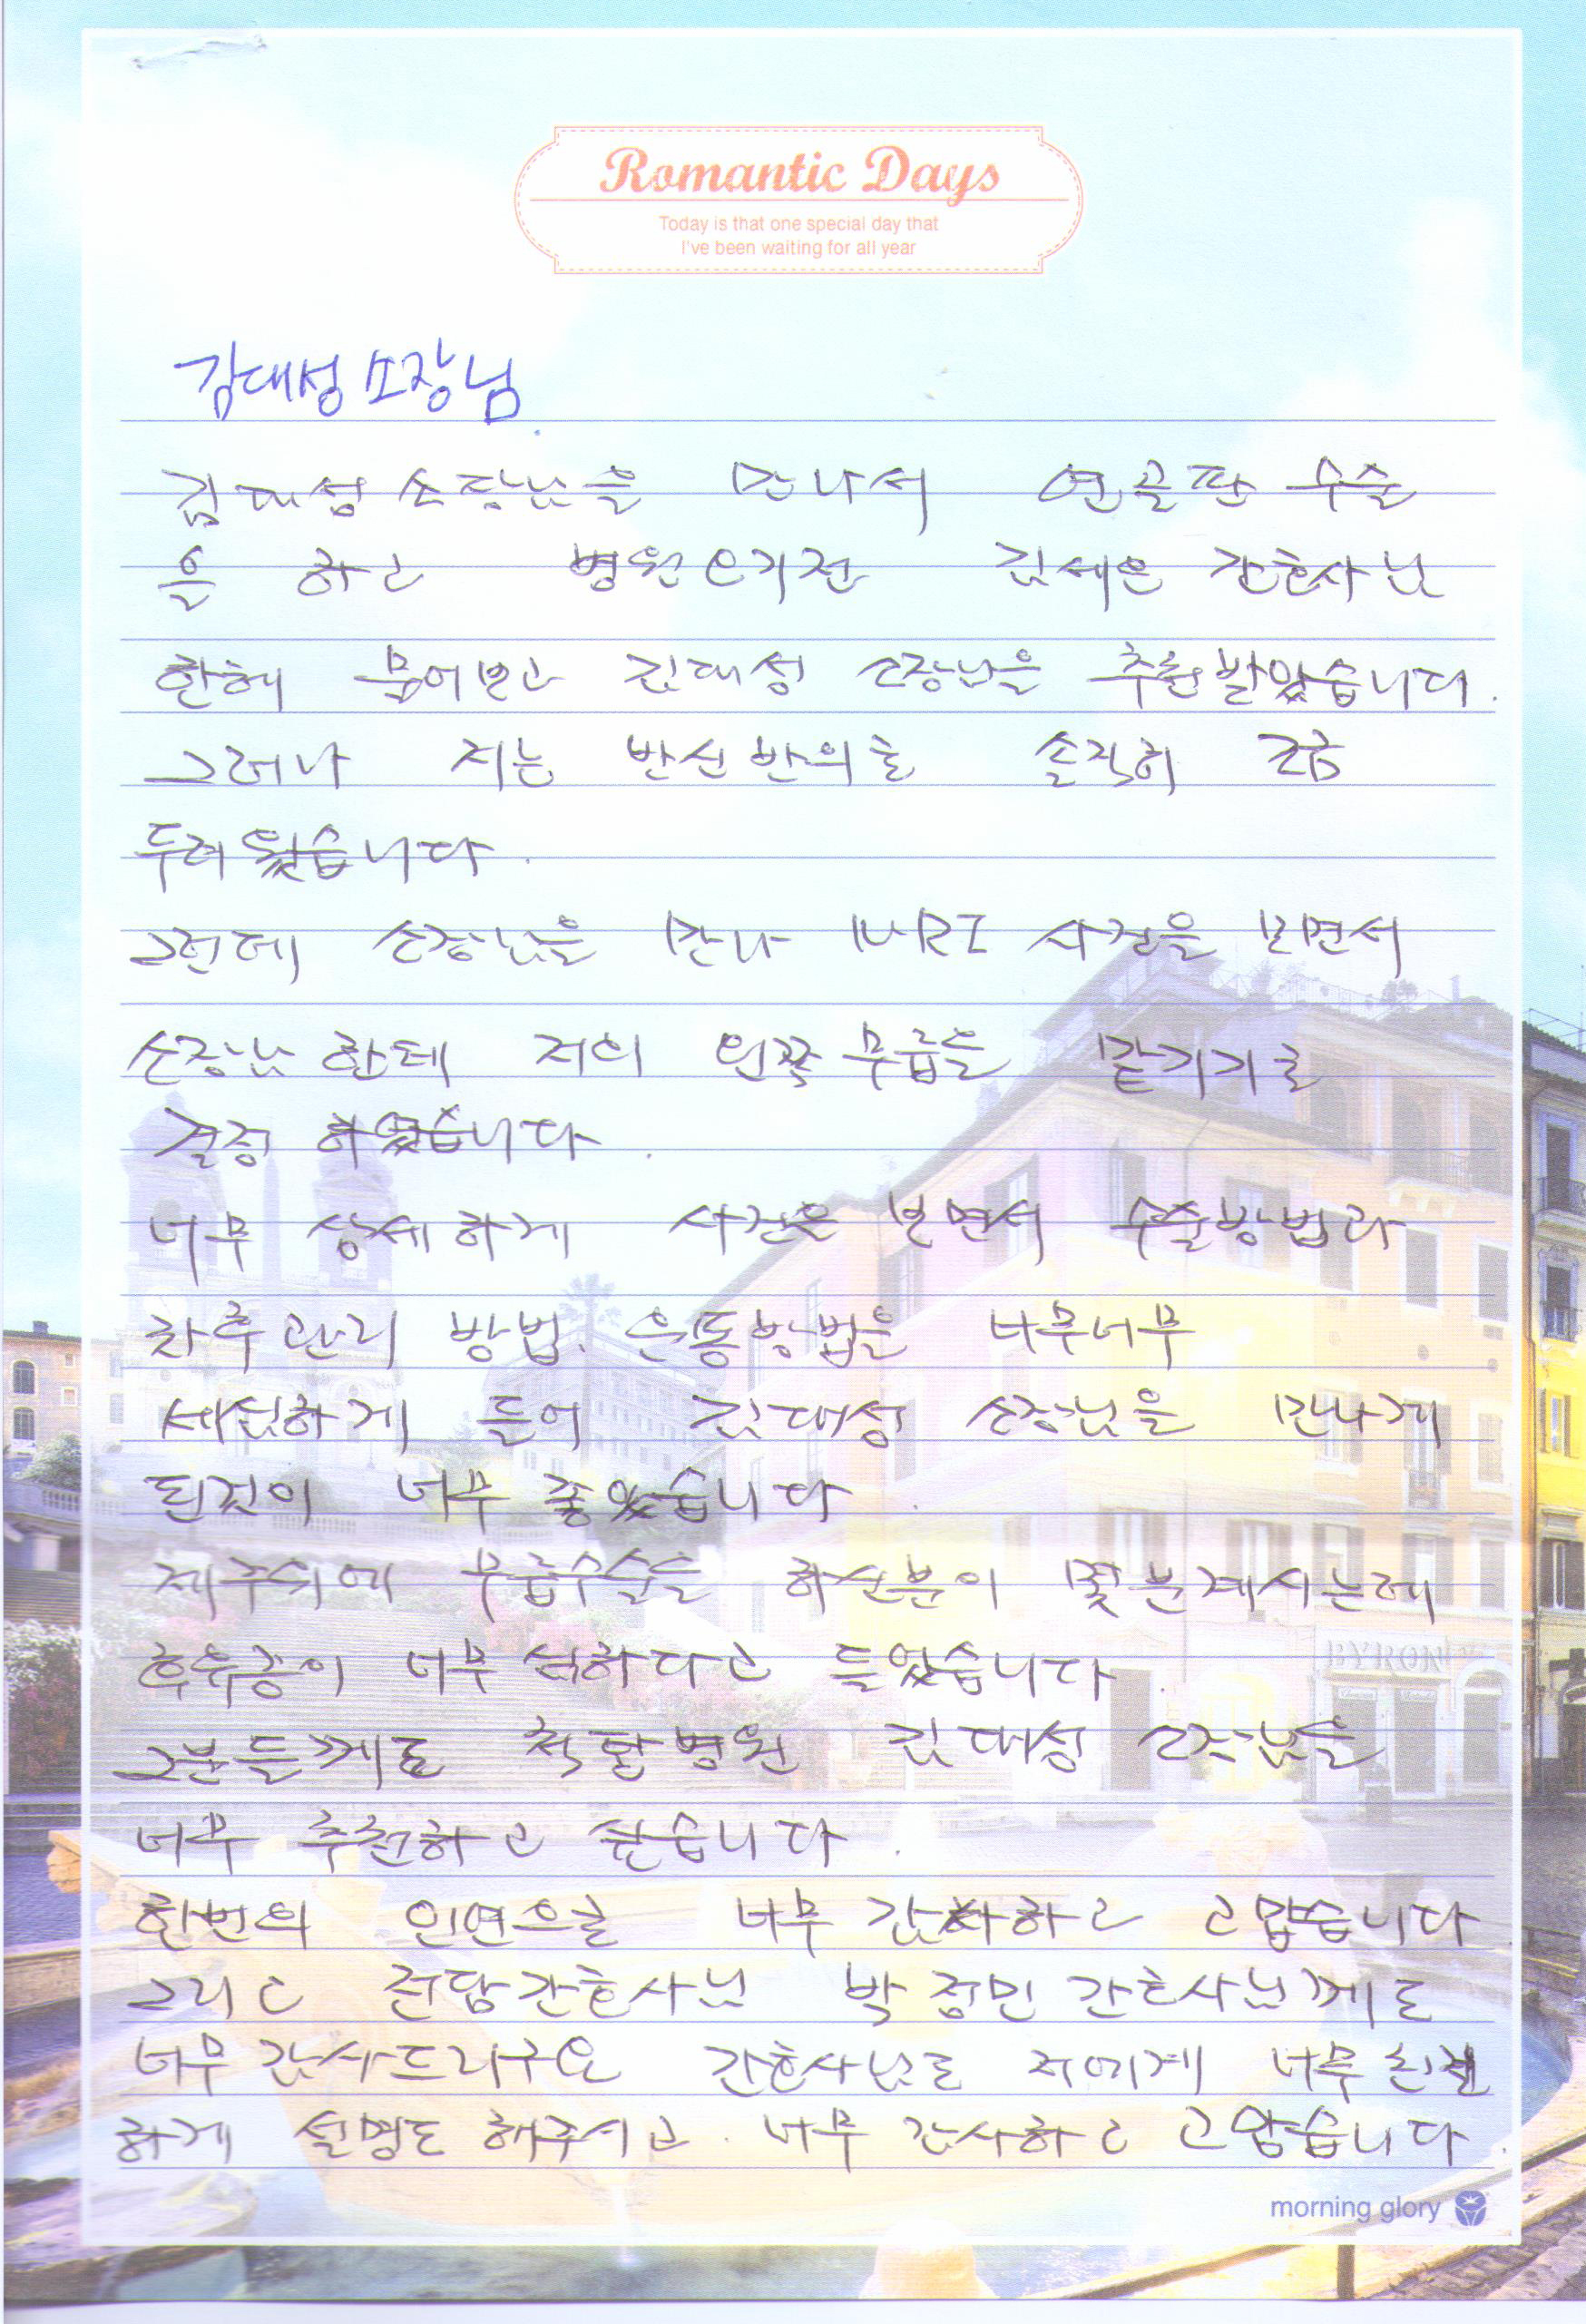 Romantic Days
Today is that one special day that
I've been waiting for all year
김대성 소장님
김대성 소장님을 만나서 연골판 수술
을 하고 병원오기전 김세은 간호사님
한헤 물어보고 김대성 소장님을 추천받았습니다.
그러나 저는 반신반의로 솔직히 조금
두려웠습니다.
그런데 소장님을 만나 MRI 사진을 보면서
소장님 한테 저의 왼쪽 무릎을 맡기기로
결정 하였습니다.
너무 상세하게 사진을 보면서 수술방법과
차후관리 방법. 운동방법을 너무너무
세심하게 들어 김대성 소장님을 만나게
된것이 너무 좋았습니다.
제주위에 무릎수술을 하신분이 몇분계시는데
후유증이 너무 심하다고 들었습니다.
그분들께도 척탑병원 김대성 소장님을
너무 추천하고 싶습니다.
한번의 인연으로 너무 감사하고 고맙습니다
그리고 전담간호사님 박정민 간호사님께도
너무 감사드리구요 간호사님도 저에게 너무 친절
하게 설명도 해주시고. 너무 감사하고 고맙습니다.
morning glory